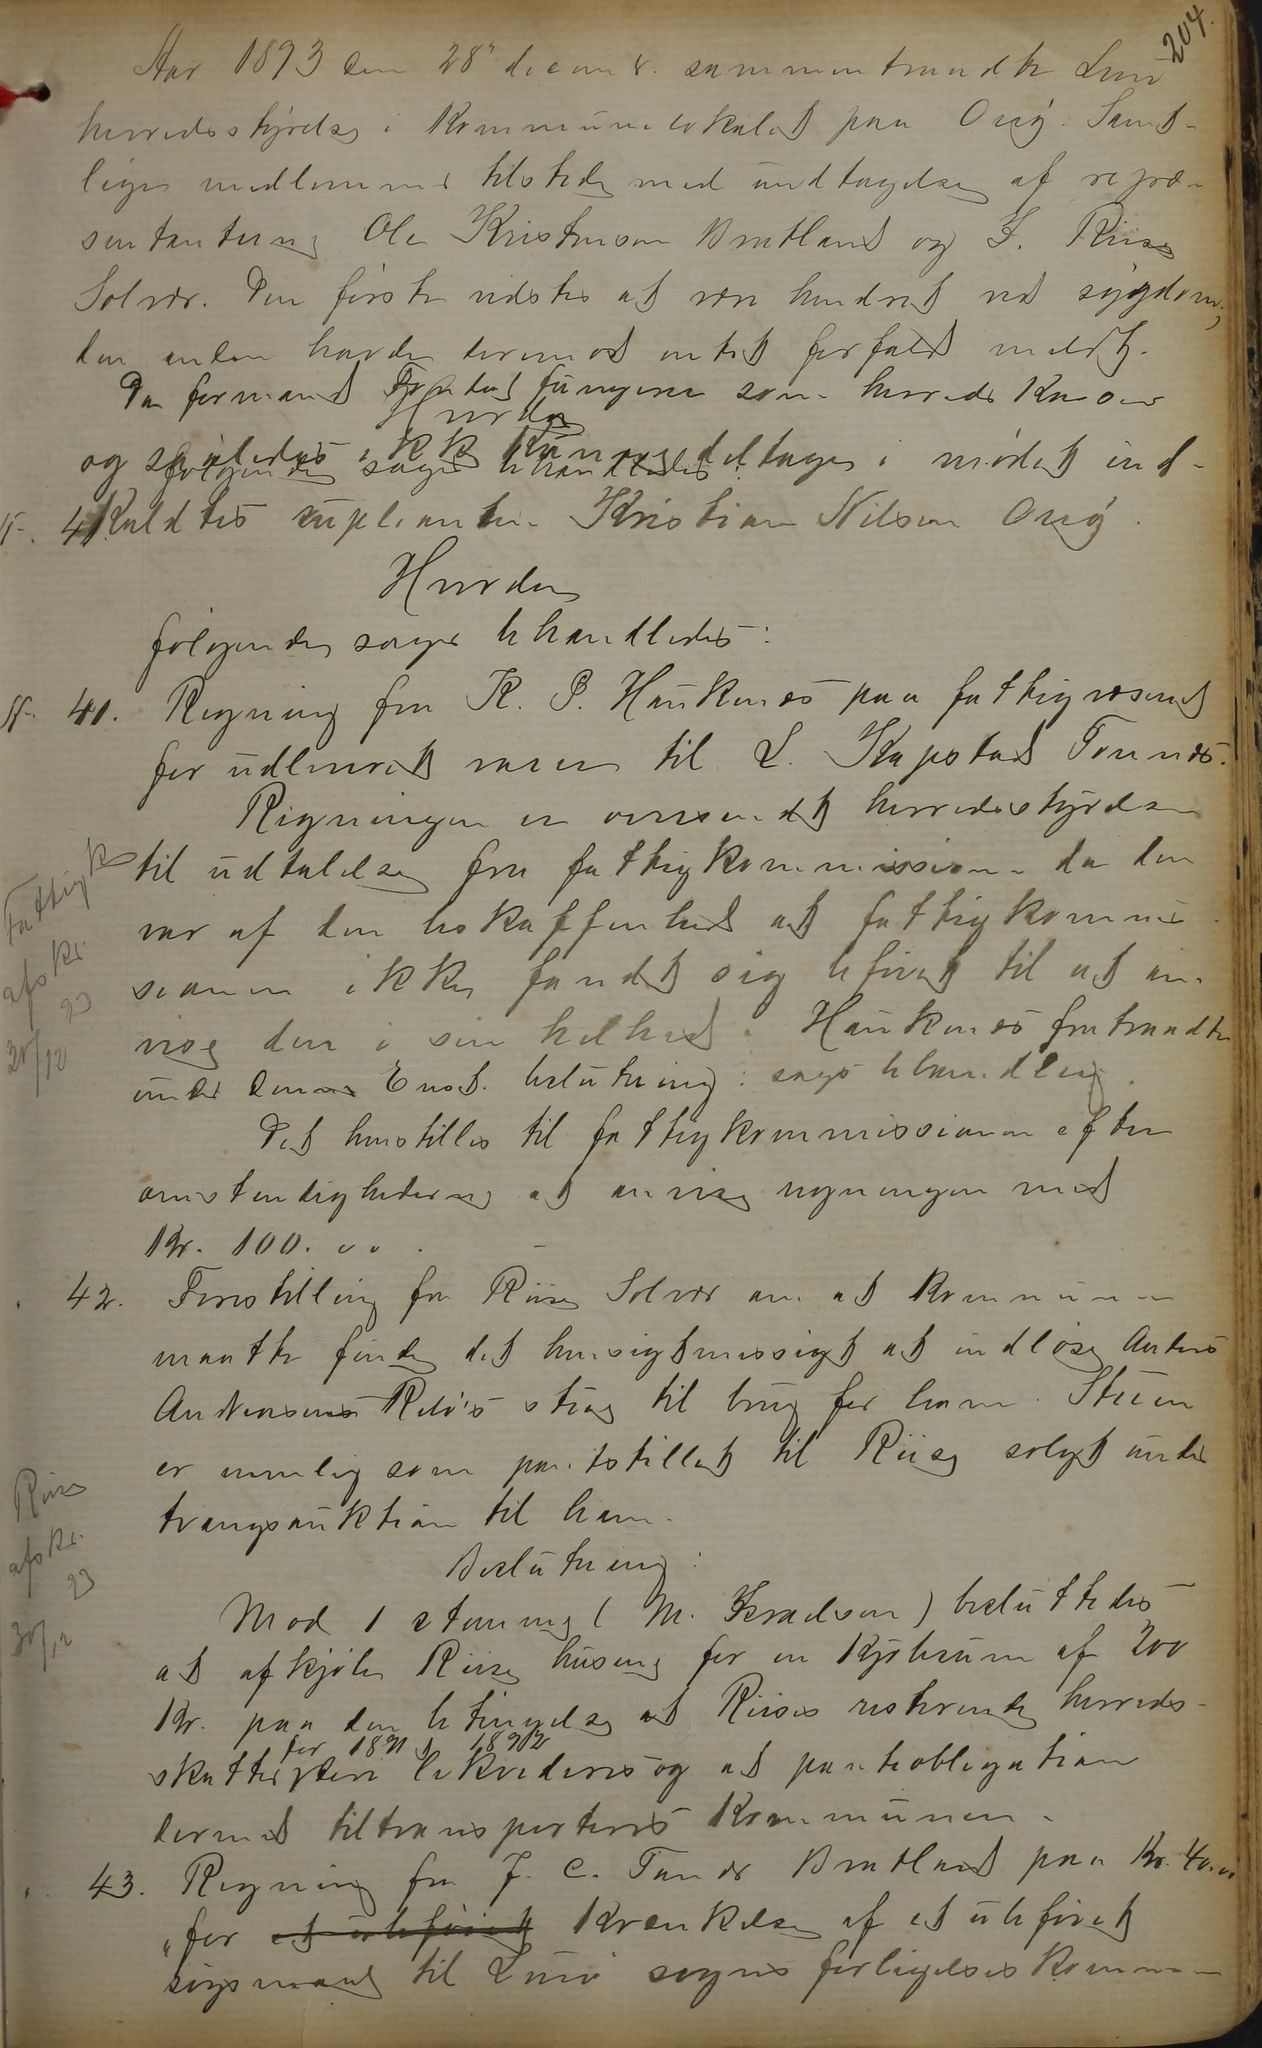 204.
Aar 1893 den 28' decemr. sammentraadte Lurø
herredsstyrelse i Kommunelokalet paa Onø. Samt-
lige medlemmer tilstede med undtagelse af repræ-
sentanterne Ole Kristensen Bratland og I. Riise
Solvær. Den første vidstes at være hindret ved sygdom;
den anden havde derimod intet forfald meldt.
Da formand fungerer som herredskasser
Hvorda
og således ikke kunne deltage i mødet ind-
følgende sager behandledes:
kaldtes suplianten Kristian Nilsen Onø.
Hvorda
følgende sager behandledes:
41. Regning fra K. P. Haukenæs paa fattigvæsenet
for udleveret varer til L. Kapstad Tonnes.
Regningen er oversendt herredsstyrelsen
til udtalelse fra fattigkommissionen da den
var af den beskaffenhed at fattigkommis
sionen ikke fandt sig beføiet til at an-
vise den i sin helhed. Haukenæs fratraadte
under denne Enst. beslutning: sags behandling
Det henstilles til fattigkommissionen efter
omstendighederne at anvise regningen med
Kr. 100.00.
Fattigk
afskr.
93
30/12
42. Forestilling fra Riise Solvær om at Kommunen
maatte finde det hensigtmessigt at indløse Anders
Andreasens Relø's stue til brug for ham. Stuen
er nemlig som pantstillet til Riise solgt under
tvangsauktion til ham.
Beslutning:
Mod 1 stemme (M. Israelsen) besluttedes
at afkjøbe Riise husene for en Kjøbesum af 200
Kr. paa den betingelse at Riises resterende herreds-
for 1891 & 1892
skatter likvideres og at pantobligation
dermed tiltransporteres Kommunen.
Riise
afskr.
93
30/12
43. Regning fra J. C. Bratland paa Kr. 40.00
"for et ubeføiet Krænkelse af et ubeføiet
søgsmaal til Lurø sogns forligelseskommis-